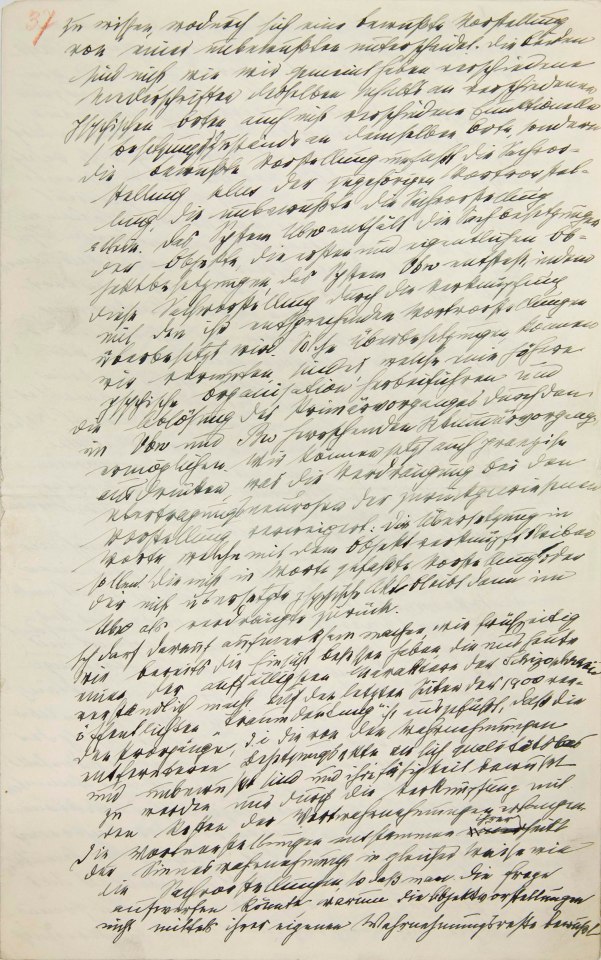 37
zu wissen, wodurch sich eine bewußte Vorstellung
von einer unbewußten unterscheidet. Die beiden
sind nicht wie wir gemeint haben verschiedene
Niederschriften desselben Inhalts an verschiedenen
psychischen Orten, auch nicht verschiedene funktionelle
Besetzungszustände an demselben Orte, sondern
die bewußte Vorstellung umfaßt die Sachvor-
stellung plus der zugehörigen Wortvorstel-
lung, die unbewußte die Sachvorstellung
allein. Das System Ubw enthält die Sachbesetzungen
der Objekte, die ersten und eigentlichen Ob-
jektbesetzungen, das System Vbw entsteht, indem
diese Sachvorstellung durch die Verknüpfung
mit den ihr entsprechenden Wortvorstellungen
überbesetzt wird. Solche Überbesetzungen können
wir vermuten, sind es welche eine höhere
psychische Organisation herbeiführen und
die Ablösung des Primärvorganges durch den
im Vbw und herrschenden Sekundärvorgang
ermöglichen. Wir können jetzt auch praezise
ausdrücken, was die Verdrängung bei den
Übertragungsneurosen der zurückgewiesenen
Vorstellung verweigert: Die Übersetzung in
Worte welche mit dem Objekt verknüpft bleiben
sollen. Die nicht in Worte gefaßte Vorstellung oder
der nicht übersetzte psychische Akt bleibt dann im
Ubw als verdrängt zurück.
Ich darf darauf aufmerksam machen, wie frühzeitig
wir bereits die Einsicht besessen haben, die uns heute
einen der auffälligsten Charaktere der Schizophrenie
verständlich macht. Auf den letzten Seiten der 1900 ver-
öffentlichten "Traumdeutung" ist ausgeführt, daß die
Denkvorgänge, d.i. die von den Wahrnehmungen
entfernteren Besetzungsakte an sich qualitätslos
und unbewußt sind und ihre Fähigkeit bewußt
zu werden nur durch die Verknüpfung mit
den Resten der Wortwahrnehmungen erlangen.
Die Wortvorstellungen entstammen ihrerseits
der Sinneswahrnehmung in gleicher Weise wie
die Sachvorstellungen, so daß man die Frage
aufwerfen könnte, warum die Objektvorstellungen
nicht mittels ihrer eigenen Wahrnehmungsreste bewußt